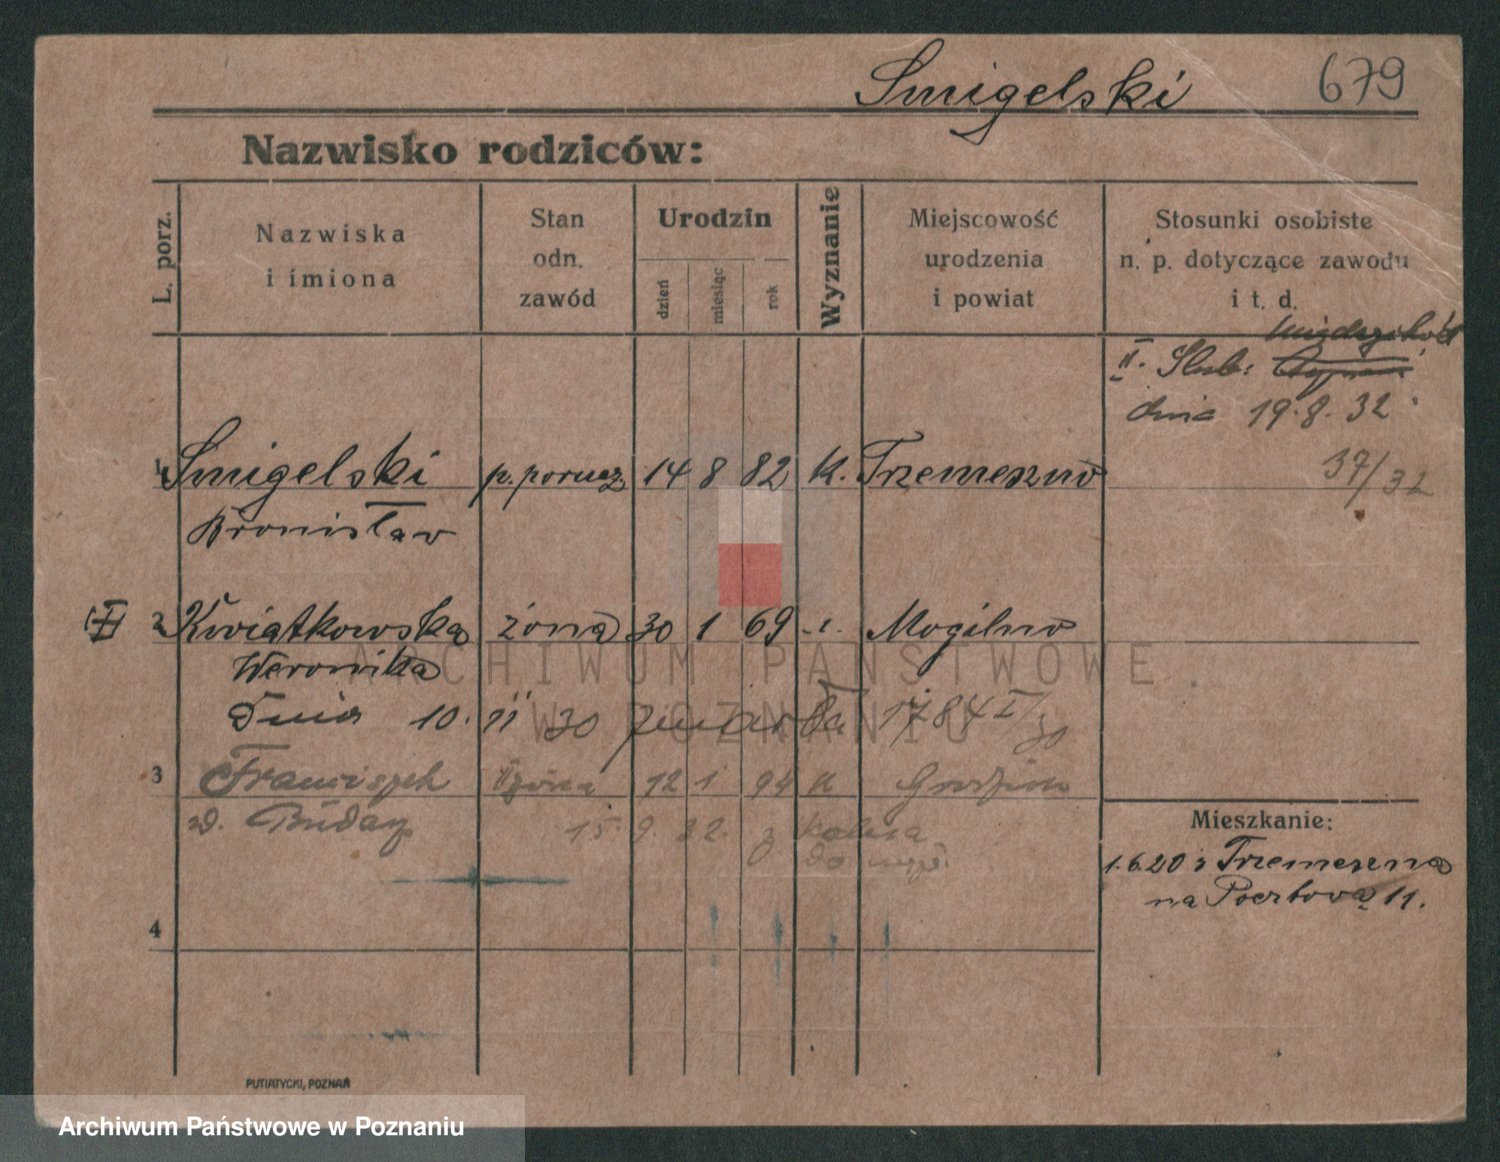 Smigelski 679
Nazwisko rodziców:
L. porz.
Nazwiska
i imiona
Stan
odn.
zawód
Urodzin
dzień
miesiąc
rok
Wyznanie
Miejscowość
urodzenia
i powiat
Stosunki osobiste
n. p. dotyczące zawodu
i t. d.
II. Slub:
dnia 19.8.32
37/32
1 Smigelski p. porucz. 14 8 82 k. Trzemeszno
Bronisław
2 Kwiatkowska żona 30 1 69 -"- Mogilno
Weronika
Dnia 10. 11 30 zmarła 1784 II/30
3 Franciszek II żona 12 1 94 k
d.
15.9.32. z
Mieszkanie:
1.6.20 z Trzemeszna
na Pocztową 11.
4
PUTIATYCKI, POZNAŃ
ARCHIWUM PAŃSTWOWE
W POZNANIU
Archiwum Państwowe w Poznaniu